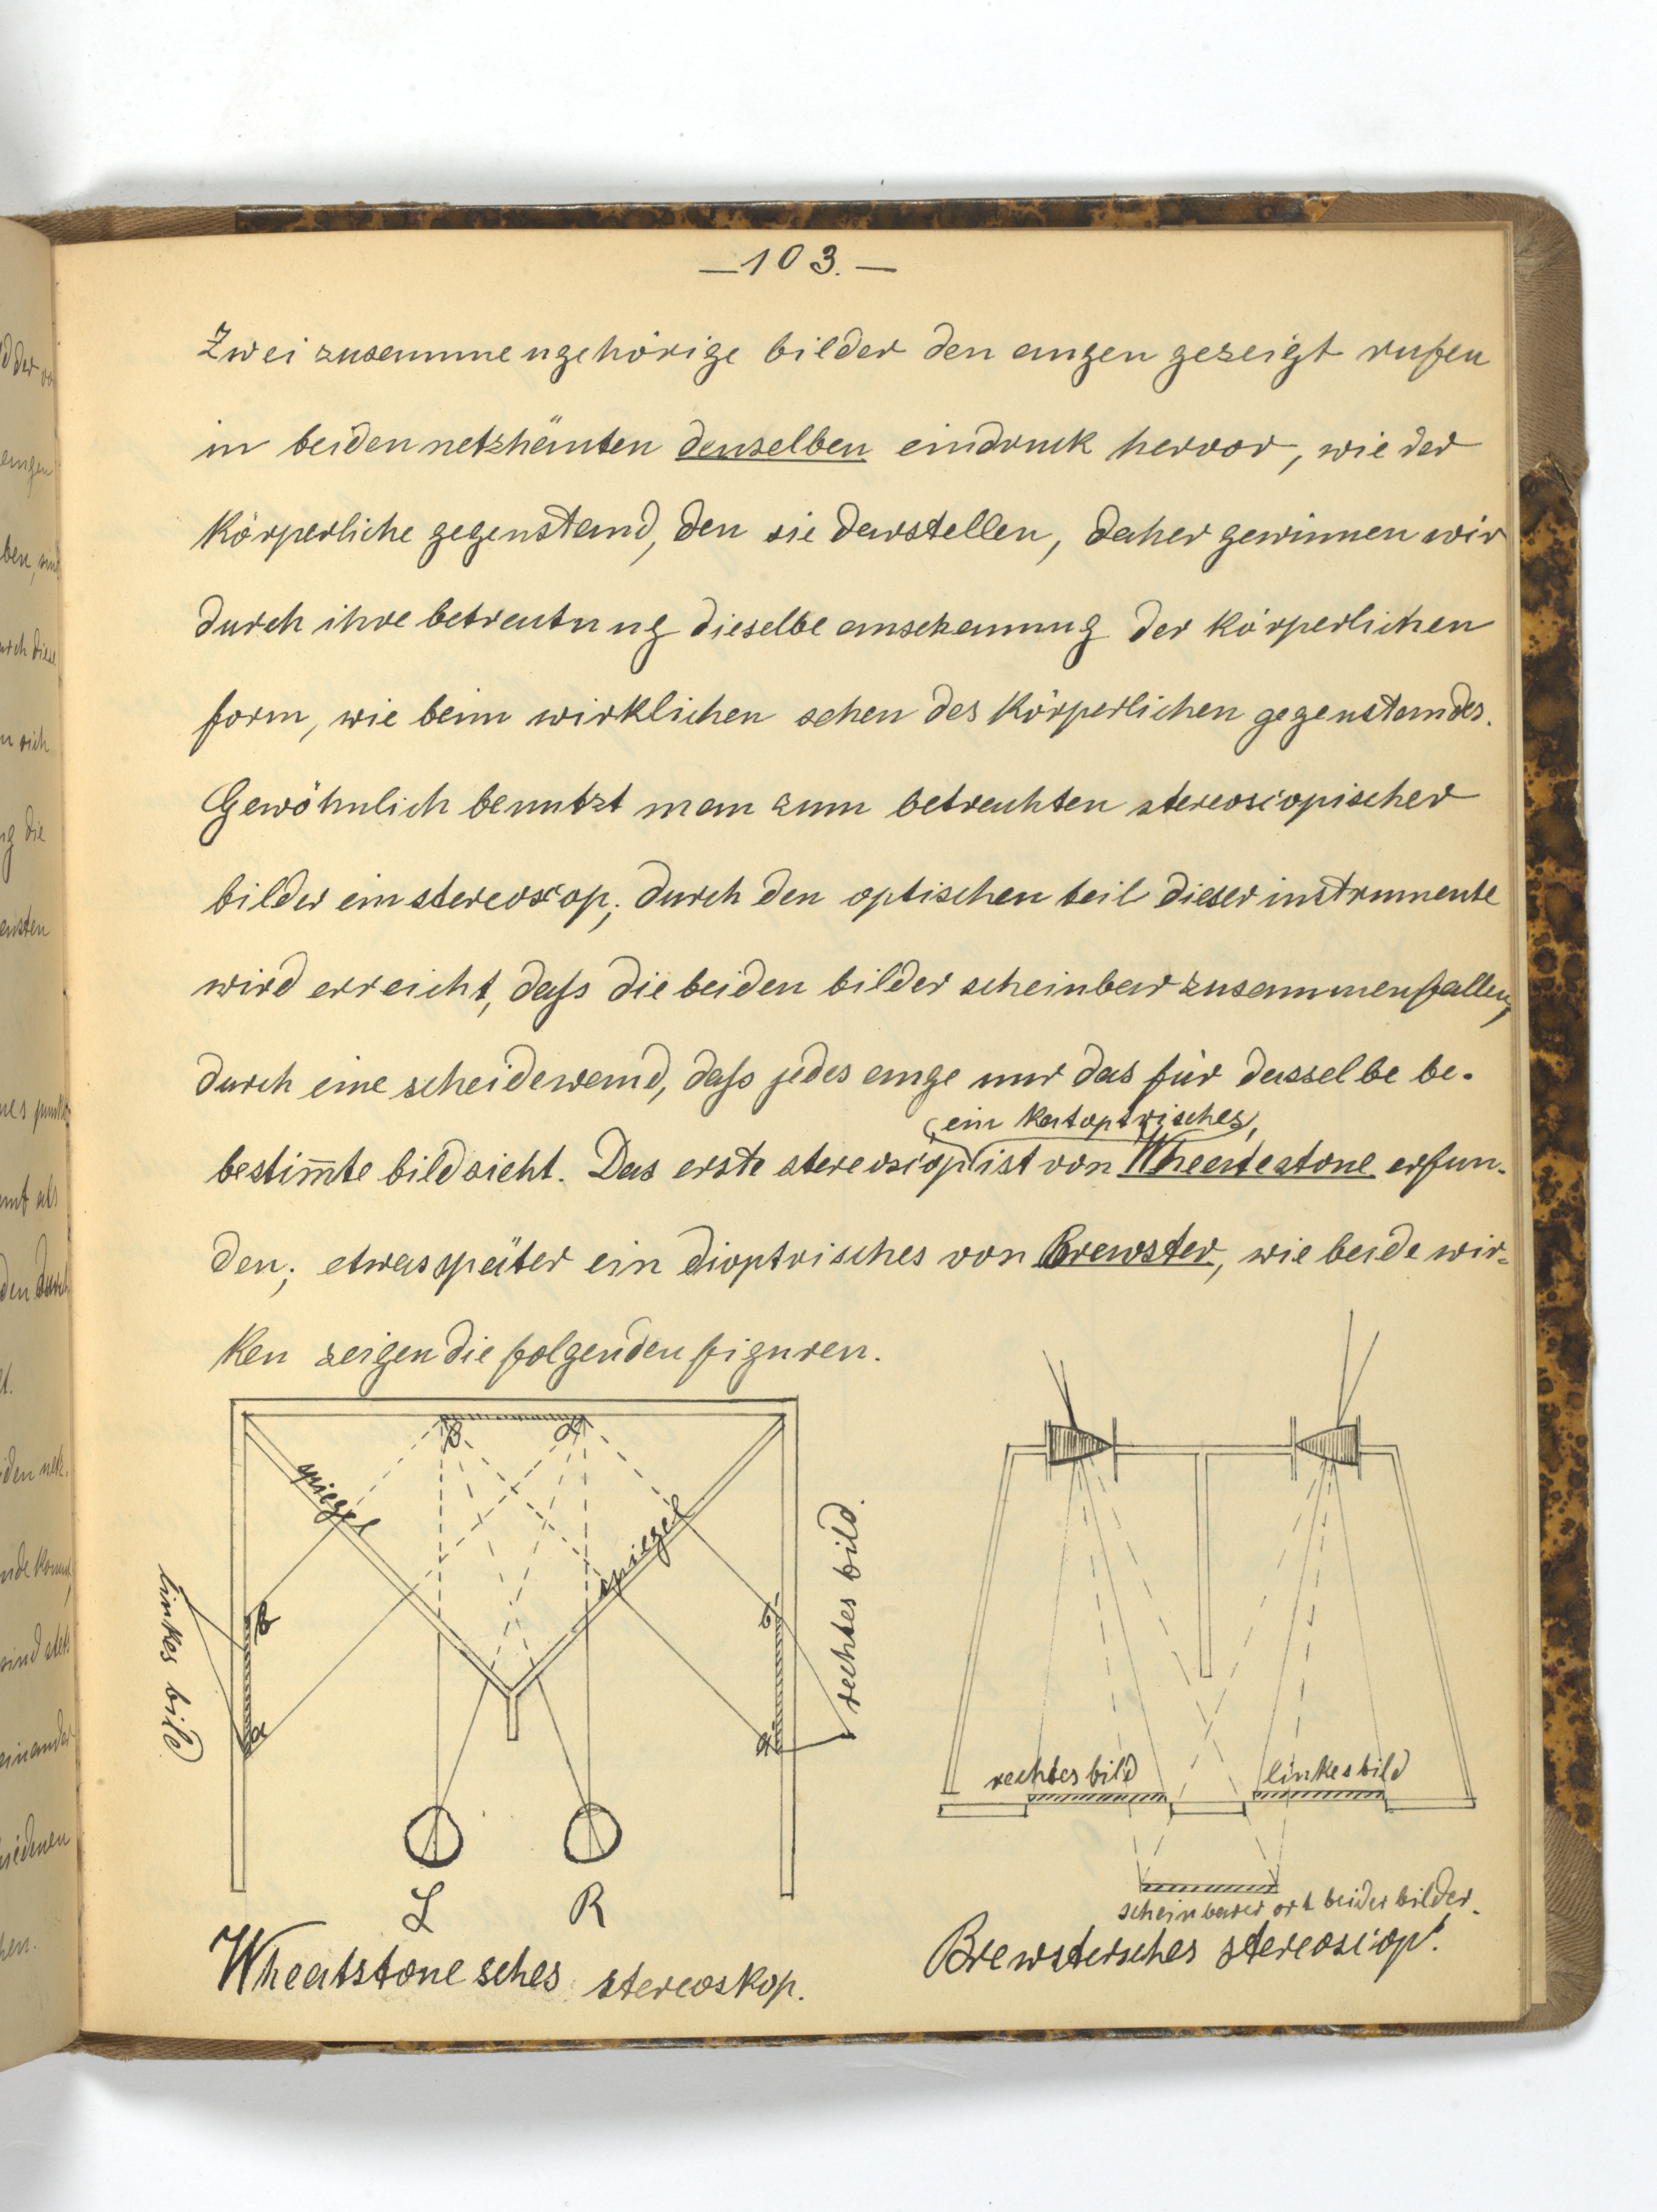 — 103. —
Zwei zusammengehörige bilder den augen gezeigt rufen
in beiden netzhäuten denselben eindruck hervor, wie der
körperliche gegenstand, den sie darstellen, daher gewinnen wir
durch ihre betrachtung dieselbe anschauung der körperlichen
form, wie beim wirklichen sehen des körperlichen gegenstandes.
Gewöhnlich benutzt man zum betrachten stereoscopischer
bilder ein stereoscop; durch den optischen teil dieser instrumente
wird erreicht, daß die beiden bilder scheinbar zusammenfallen,
durch eine scheidewand, daß jedes auge nur das für dasselbe be-
(ein katoptrisches)
bestim̄te bild sieht. Das erste stereoscop ist von Wheatstone erfun-
den; etwas später ein dioptrisches von Brewster, wie beide wir-
ken zeigen die folgenden figuren.
spiegel
spiegel
linkes bild
b
a
b'
a'
rechtes bild.
L R
Wheatstonesches stereoskop.
rechtes bild linkes bild
scheinbarer ort beider bilder.
Brewstersches stereoscop.